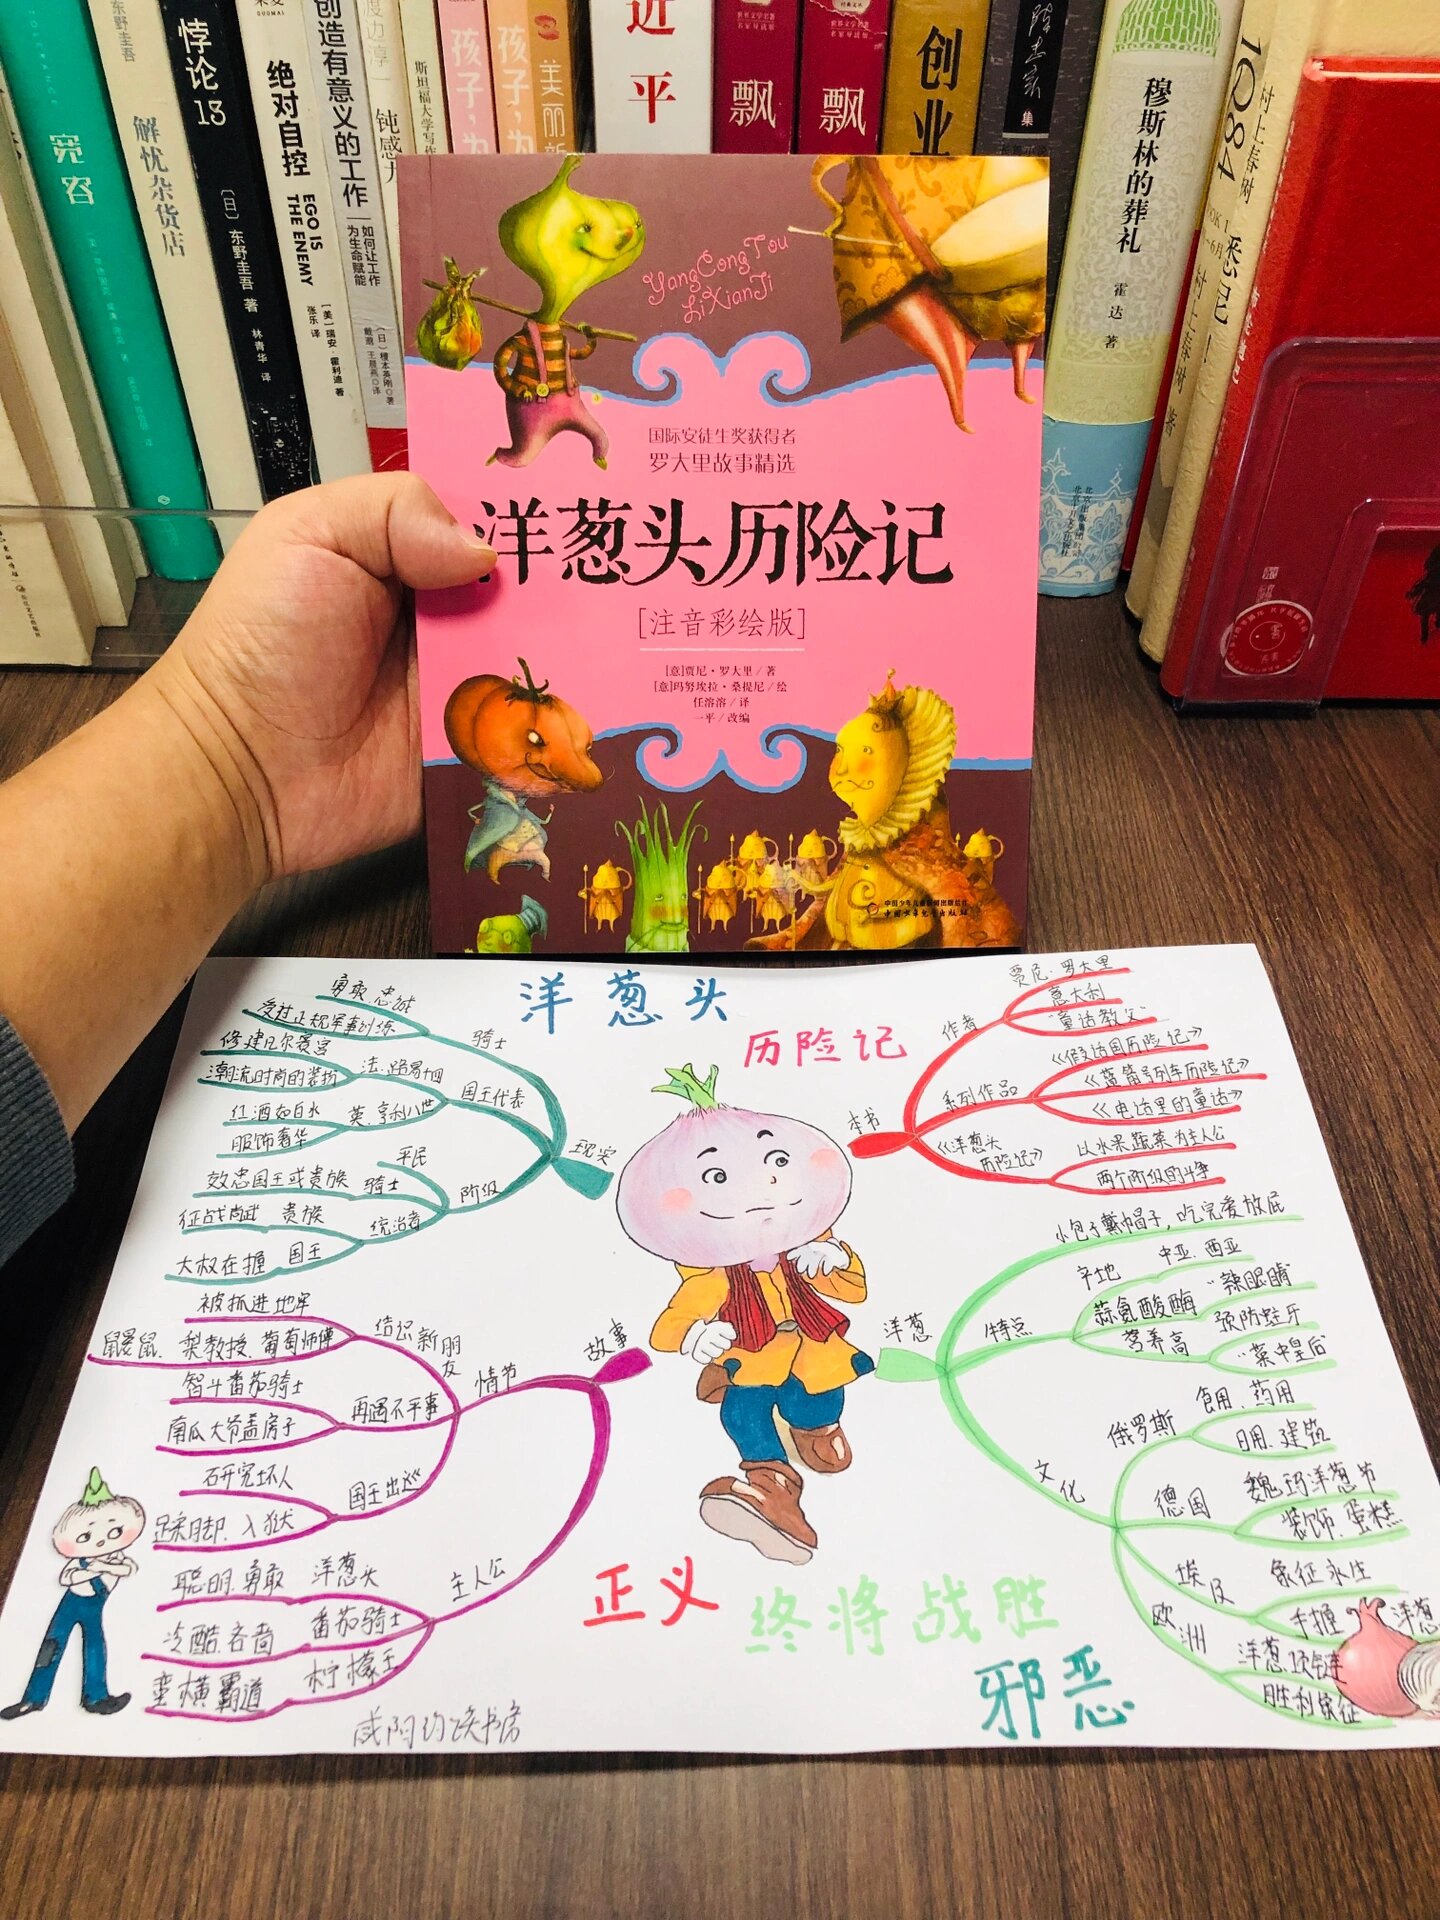 宽容
东野圭吾
解忧杂货店
悖论13
[日]东野圭吾 著
林青华 译
绝对自控
EGO IS
THE ENEMY
[美]瑞安·霍利迪 著
张乐 译
创造有意义的工作
如何让工作
为生命赋能
钝感力
斯坦福大学写作
孩子,为
孩子,为
美丽新
近平
飘
飘
创业
集
穆斯林的葬礼
霍达 著
1Q84
BOOK 1
村上春树
村上春树 著
YangCongTou
LiXianJi
国际安徒生奖获得者
罗大里故事精选
洋葱头历险记
[注音彩绘版]
[意]贾尼·罗大里/著
[意]玛努埃拉·桑提尼/绘
任溶溶/译
一平/改编
中国少年儿童新闻出版总社
中国少年儿童出版社
洋葱头
历险记
本书
作者
贾尼·罗大里
意大利
“童话教父”
系列作品
《假话国历险记》
《蓝箭号列车历险记》
《电话里的童话》
《洋葱头
历险记》
以水果蔬菜为主人公
两个阶级的斗争
洋葱
小包子戴帽子,吃完爱放屁
特点
产地
中亚、西亚
蒜氨酸酶
“辣眼睛”
营养高
预防蛀牙
“菜中皇后”
文化
俄罗斯
食用、药用
日用、建筑
德国
魏玛洋葱节
装饰、蛋糕
埃及
象征永生
手握洋葱
欧洲
洋葱项链
胜利象征
现实
骑士
勇敢、忠诚
受过正规军事训练
国王代表
法:路易十四
修建凡尔赛宫
潮流时尚的装扮
英:亨利八世
红酒如白水
服饰奢华
阶级
平民
骑士
效忠国王或贵族
统治者
贵族
征战尚武
国王
大权在握
故事
情节
结识新朋友
被抓进地牢
鼹鼠、梨教授、葡萄师傅
再遇不平事
智斗番茄骑士
南瓜大爷盖房子
国王出巡
研究坏人
踩脚、入狱
主人公
洋葱头
聪明、勇敢
番茄骑士
冷酷、吝啬
柠檬王
蛮横霸道
正义
终将战胜
邪恶
咸阳约读书房